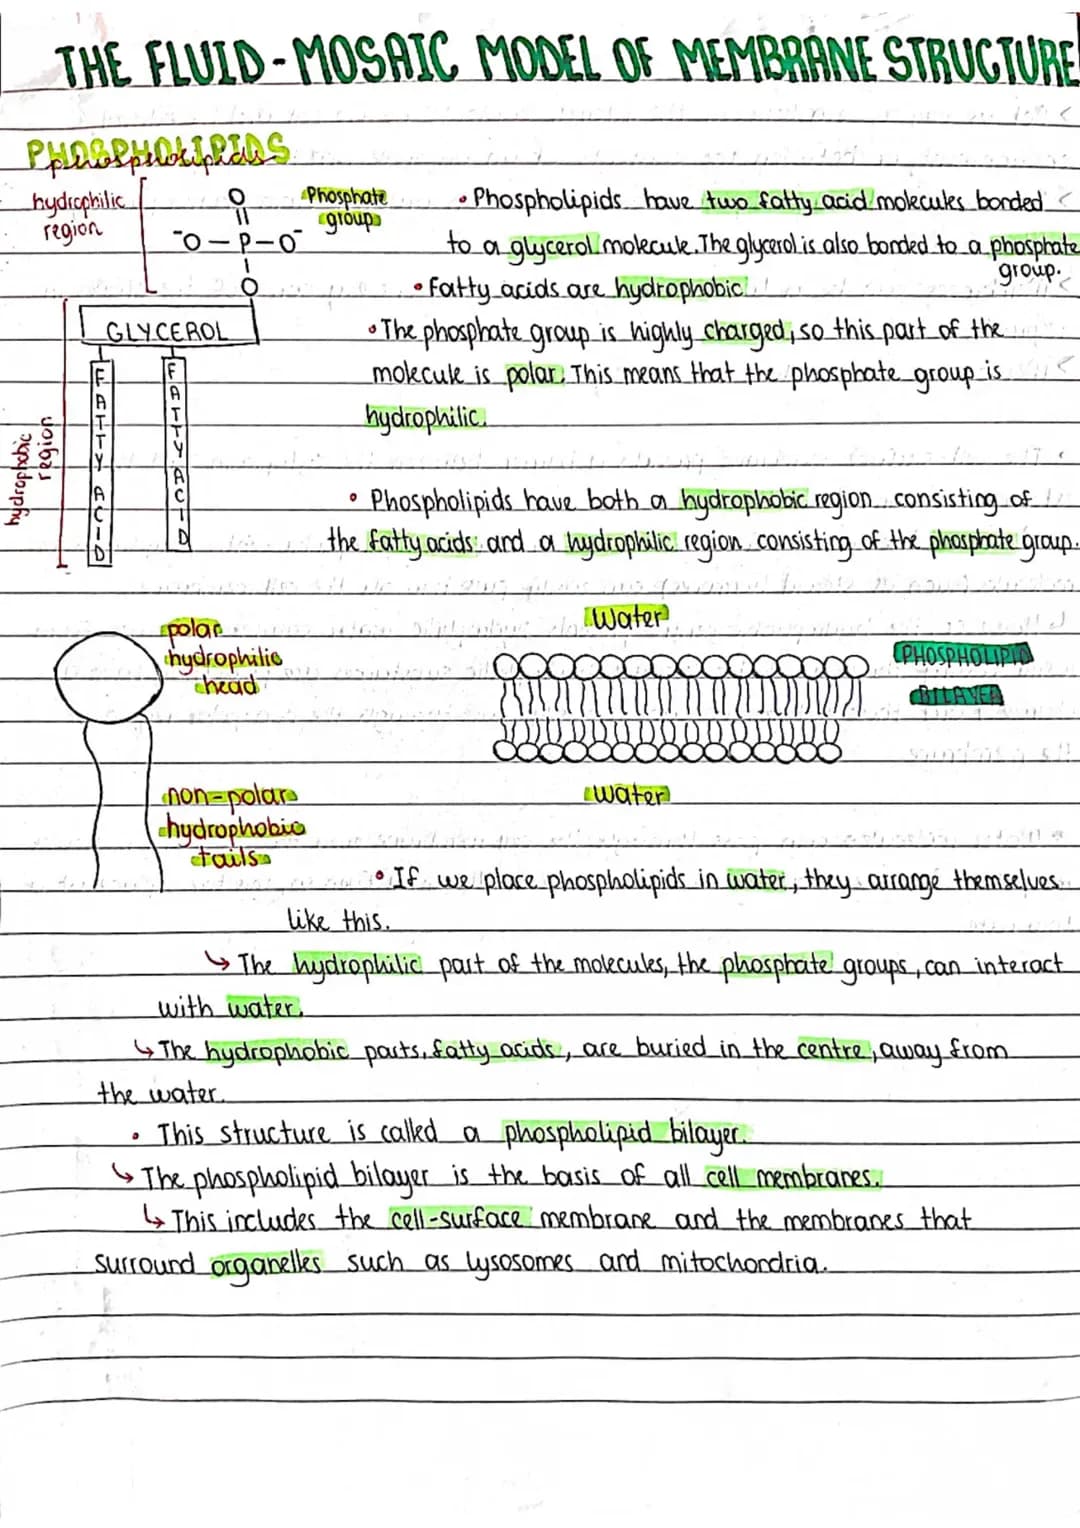 THE FLUID-MOSAIC MODEL OF MEMBRANE STRUCTURE
PHOSPHOLIPIDS
phospholipids
hydrophilic
region
O
Phosphate
group
⁻O-P-O⁻
O
GLYCEROL
FATTY ACID
FATTY ACID
hydrophobic
region
• Phospholipids have two fatty acid molecules bonded
to a glycerol molecule. The glycerol is also bonded to a phosphate
group.
• Fatty acids are hydrophobic.
• The phosphate group is highly charged, so this part of the
molecule is polar. This means that the phosphate group is
hydrophilic.
• Phospholipids have both a hydrophobic region consisting of
the fatty acids and a hydrophilic region consisting of the phosphate group.
polar
hydrophilic
head
non-polar
hydrophobic
tails
Water
PHOSPHOLIPID
BILAYER
Water
• If we place phospholipids in water, they arrange themselves
like this.
↳ The hydrophilic part of the molecules, the phosphate groups, can interact
with water.
↳ The hydrophobic parts, fatty acids, are buried in the centre, away from
the water.
• This structure is called a phospholipid bilayer.
↳ The phospholipid bilayer is the basis of all cell membranes.
↳ This includes the cell-surface membrane and the membranes that
surround organelles such as lysosomes and mitochondria.